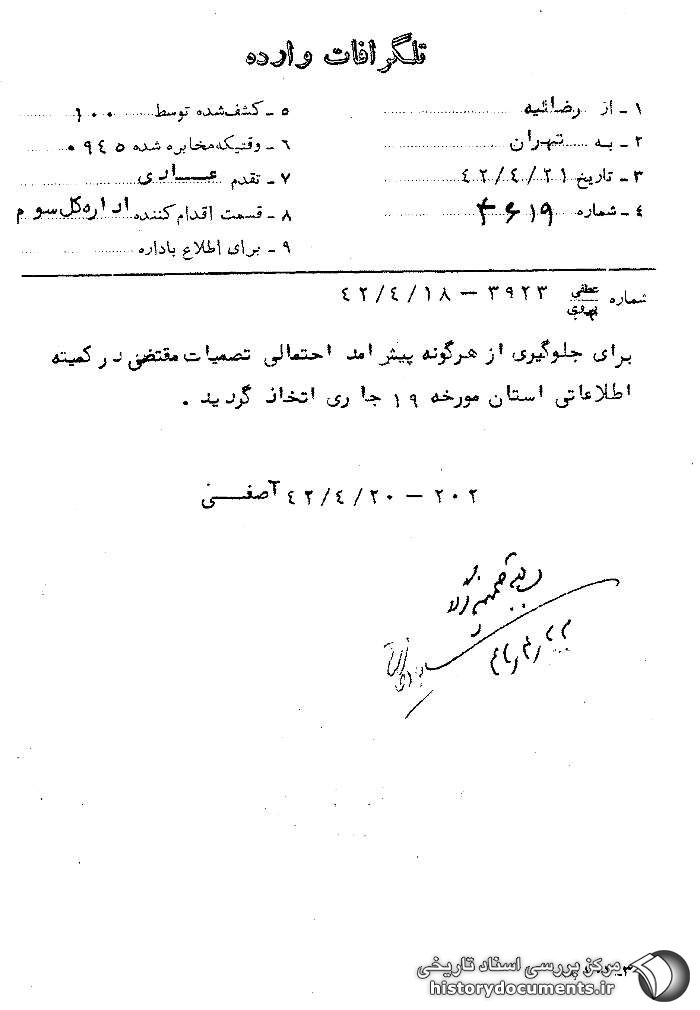 تلگرافات وارده
۱ - از رضائیه
۲ - به تهران
۳ - تاریخ ۴۲/۴/۲۱
۴ - شماره ۴۶۱۹
۵ - کشف شده توسط ۱۰۰
۶ - وقتیکه مخابره شده ۰۹۴۵
۷ - تقدم عادی
۸ - قسمت اقدام کننده اداره کل سوم
۹ - برای اطلاع باداره
شماره ۳۹۲۳ - ۴۲/۴/۱۸
برای جلوگیری از هرگونه پیش امد احتمالی تصمیات مقتضی در کمیته
اطلاعاتی استان مورخه ۱۹ جاری اتخاذ گردید .
۲۰۲ - ۴۲/۴/۲۰ آصفی
مرکز بررسی اسناد تاریخی
historydocuments.ir